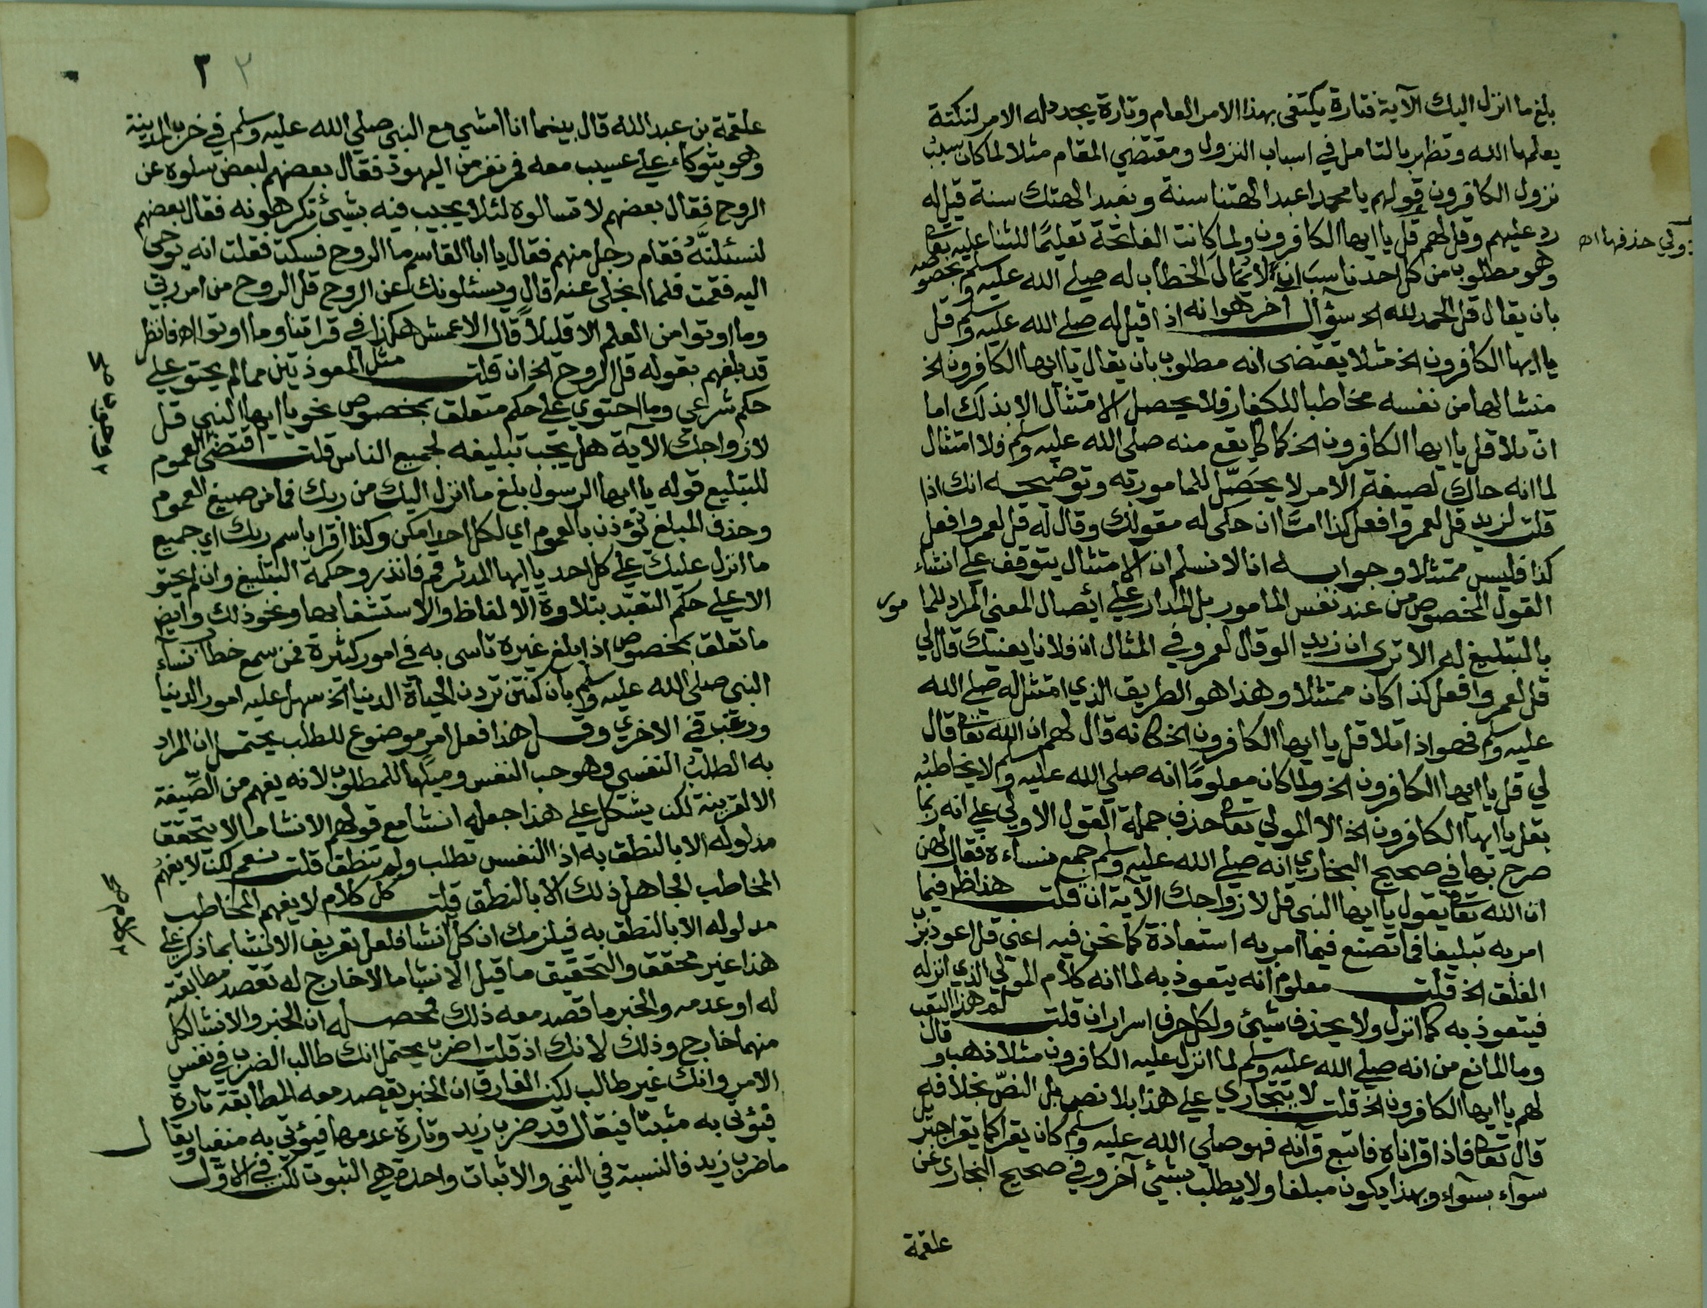 بلغ ما انزل اليك الآية فتارة يكتفى بهذا الامر العام وتارة يجدد له الامر لنكتة
يعلمها الله وتظهر بالتامل في اسباب النزول ومقتضي المقام مثلا لما كان سبب
نزول الكافرون قولهم يا محمد اعبد الهتنا سنة ونعبد الهك سنة قيل له
رد عليهم وقل لهم قل يا ايها الكافرون ولما كانت الفاتحة تعليمًا للثنا عليه تعا
وهو مطلوب من كل احد ناسب ان لا يمال الخطاب له صلي الله عليه وسلم بخصوصه
بان يقال قل الحمد لله الخ سؤال آخر هو انه اذا قيل له صلي الله عليه وسلم قل
يا ايها الكافرون الخ مثلا يقتضى انه مطلوب بان يقال يا ايها الكافرون الخ
منشا لها من نفسه مخاطبا للكفار ولا يحصل الامتثال الا بذلك اما
ان تلا قل يا ايها الكافرون الخ كما يقع منه صلى الله عليه وسلم فلا امتثال
لما انه حاك لصيغة الامر لا يحصّل للمامور به وتوضيحه انك اذا
قلت لزيد قل لعمرو افعل كذا امتَّا ان حكى له مقولك وقال له قل لعمرو افعل
كذا فليس ممتثلا وجوابه انا لا نسلم ان الامتثال يتوقف على انشاء
القول المخصوص من عند نفس المامور بل المدار علي ايصال المعني المراد للمامور
بالتبليغ له الا ترى ان زيد الو قال لعمرو في المثال ان فلانا يعنيك قال لي
قل لعمرو افعل كذا كان ممتثلا وهذا هو الطريق الذي امتثل له صلي الله
عليه وسلم فهو اذا تلا قل يا ايها الكافرون الخ كانه قال لهم ان الله تعا قال
لي قل يا ايها الكافرون الخ ولما كان معلومًا انه صلي الله عليه وسلم لا يخاطب
بقل يا ايها الكافرون الخ الا المولي تعا حذف جملة القول الاولي على انه ربما
صرح بها في صحيح البخاري انه صلي الله عليه وسلم جمع نساءه فقال لهن
ان الله تعا يقول يا ايها النبي قل لازواجك الآية ان قلت هذا ظر فيما
امر به تبليغا فما تصنع فيما امر به استعاذة كما نحن فيه اعني قل اعوذ برب
الفلق الخ قلت معلوم انه يتعوذ به لما انه كلام المولي الذي انزله
فيتعوذ به كما انزل ولا يحذف شيئ ولكل حرف اسرار ان قلت لم هذا التعب
وما المانع من انه صلي الله عليه وسلم لما انزل عليه الكافرون مثلا ذهب وقال
لهم يا ايها الكافرون الخ قلت لا يتجاري على هذا بلا نص بل النصّ بخلافه
قال تعا فاذا قراناه فاتبع قرآنه فهو صلي الله عليه وسلم كان يقرا كما يقرا جبريل
سوآء بسوآء وبهذا يكون مبلغا ولا يطلب بشيئ آخر وفي صحيح البخاري عن
علقمة
علقمة بن عبد الله قال بينما انا امشي مع النبي صلي الله عليه وسلم في خرب المدينة
وهو يتوكاء علي عسيب معه فمر نفر من اليهود فقال بعضهم لبعض سلوه عن
الروح فقال بعضهم لا تسالوه لئلا يجيب فيه بشيئ تكرهونه فقال بعضهم
لنسئلنَّه فقام رجل منهم فقال يا ابا القاسم ما الروح فسكت فقلت انه يوحى
اليه فقمت فلما انجلى عنه قال ويسئلونك عن الروح قل الروح من امر ربي
وما اوتوا من العلم الا قليلاً قال الاعمش هكذا في قراتنا وما اوتوا اهـ فانظر
قد بلغهم بقوله قل الروح الخ ان قلت مثل المعوذتين مما لم يحتوي على
حكم شرعي وما احتوي على حكم متعلق بخصوص نحو يا ايها النبي قل
لازواجك الآية هل يجب تبليغه لجميع الناس قلت اقتضى العموم
للتبليغ قوله يا ايها الرسول بلغ ما انزل اليك من ربك فما من صيغ العموم
وحذف المبلغ يؤذن بالعموم اي لكل احد امكن وكذا اقرا باسم ربك اي جميع
ما انزل عليك علي كل احد يا ايها المدثر قم فانذر وحكمة التبليغ وان لم يحتو
الا على حكم التعبّد بتلاوة الالفاظ والاستشفا بها ونحو ذلك وايض
ما تعلق بخصوص اذا بلغ غيره تاسى به في امور كثيرة فمن سمع خطاب نساء
النبي صلى الله عليه وسلم بان كنتن تردن الحياة الدنيا الخ سهل عليه امور الدنيا
ورغب في الاخري وقل هذا فعل امر موضوع للطلب يحتمل ان المراد
به الطلب النفسي وهو حب النفس وميلها للمطلوب لانه يفهم من الصّيغة
الا لقرينة لكن يشكل علي هذا جعله انشا مع قولهم الانشا ما لا يتحقق
مدلوله الا بالنطق به اذ النفس تطلب ولم تنطق قلت نعم لكن لا يفهم
المخاطب الجاهل ذلك الا بالنطق قلت كل كلام لا يفهم المخاطب
مدلوله الا بالنطق به فيلزمك ان كل انشا فلعل تعريف الانشا بما ذكر علي
هذا غير محقق والتحقيق ما قيل الانشا ما لا خارج له تقصد مطابقته
له او عدمه والخبر ما قصد معه ذلك فمحصله ان الخبر والانشا لكل
منهما خارج وذلك لانك اذ قلت اضرب يحتمل انك طالب الضرب في نفس
الامر وانك غير طالب لكن الفارق ان الخبر يقصد معه المطابقة تارة
فيؤتي به مثبتا فيقال قد ضرب زيد وتارة عدمها فيؤتي به منفيا ويقال
ما ضرب زيد فالنسبة في النفي والاثبات واحدة هي الثبوت لكن في الاول